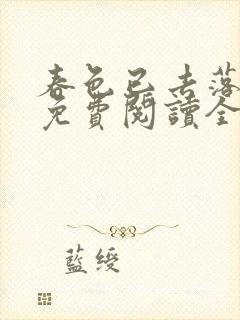 春色已去落
免費閱讀全
藍綬